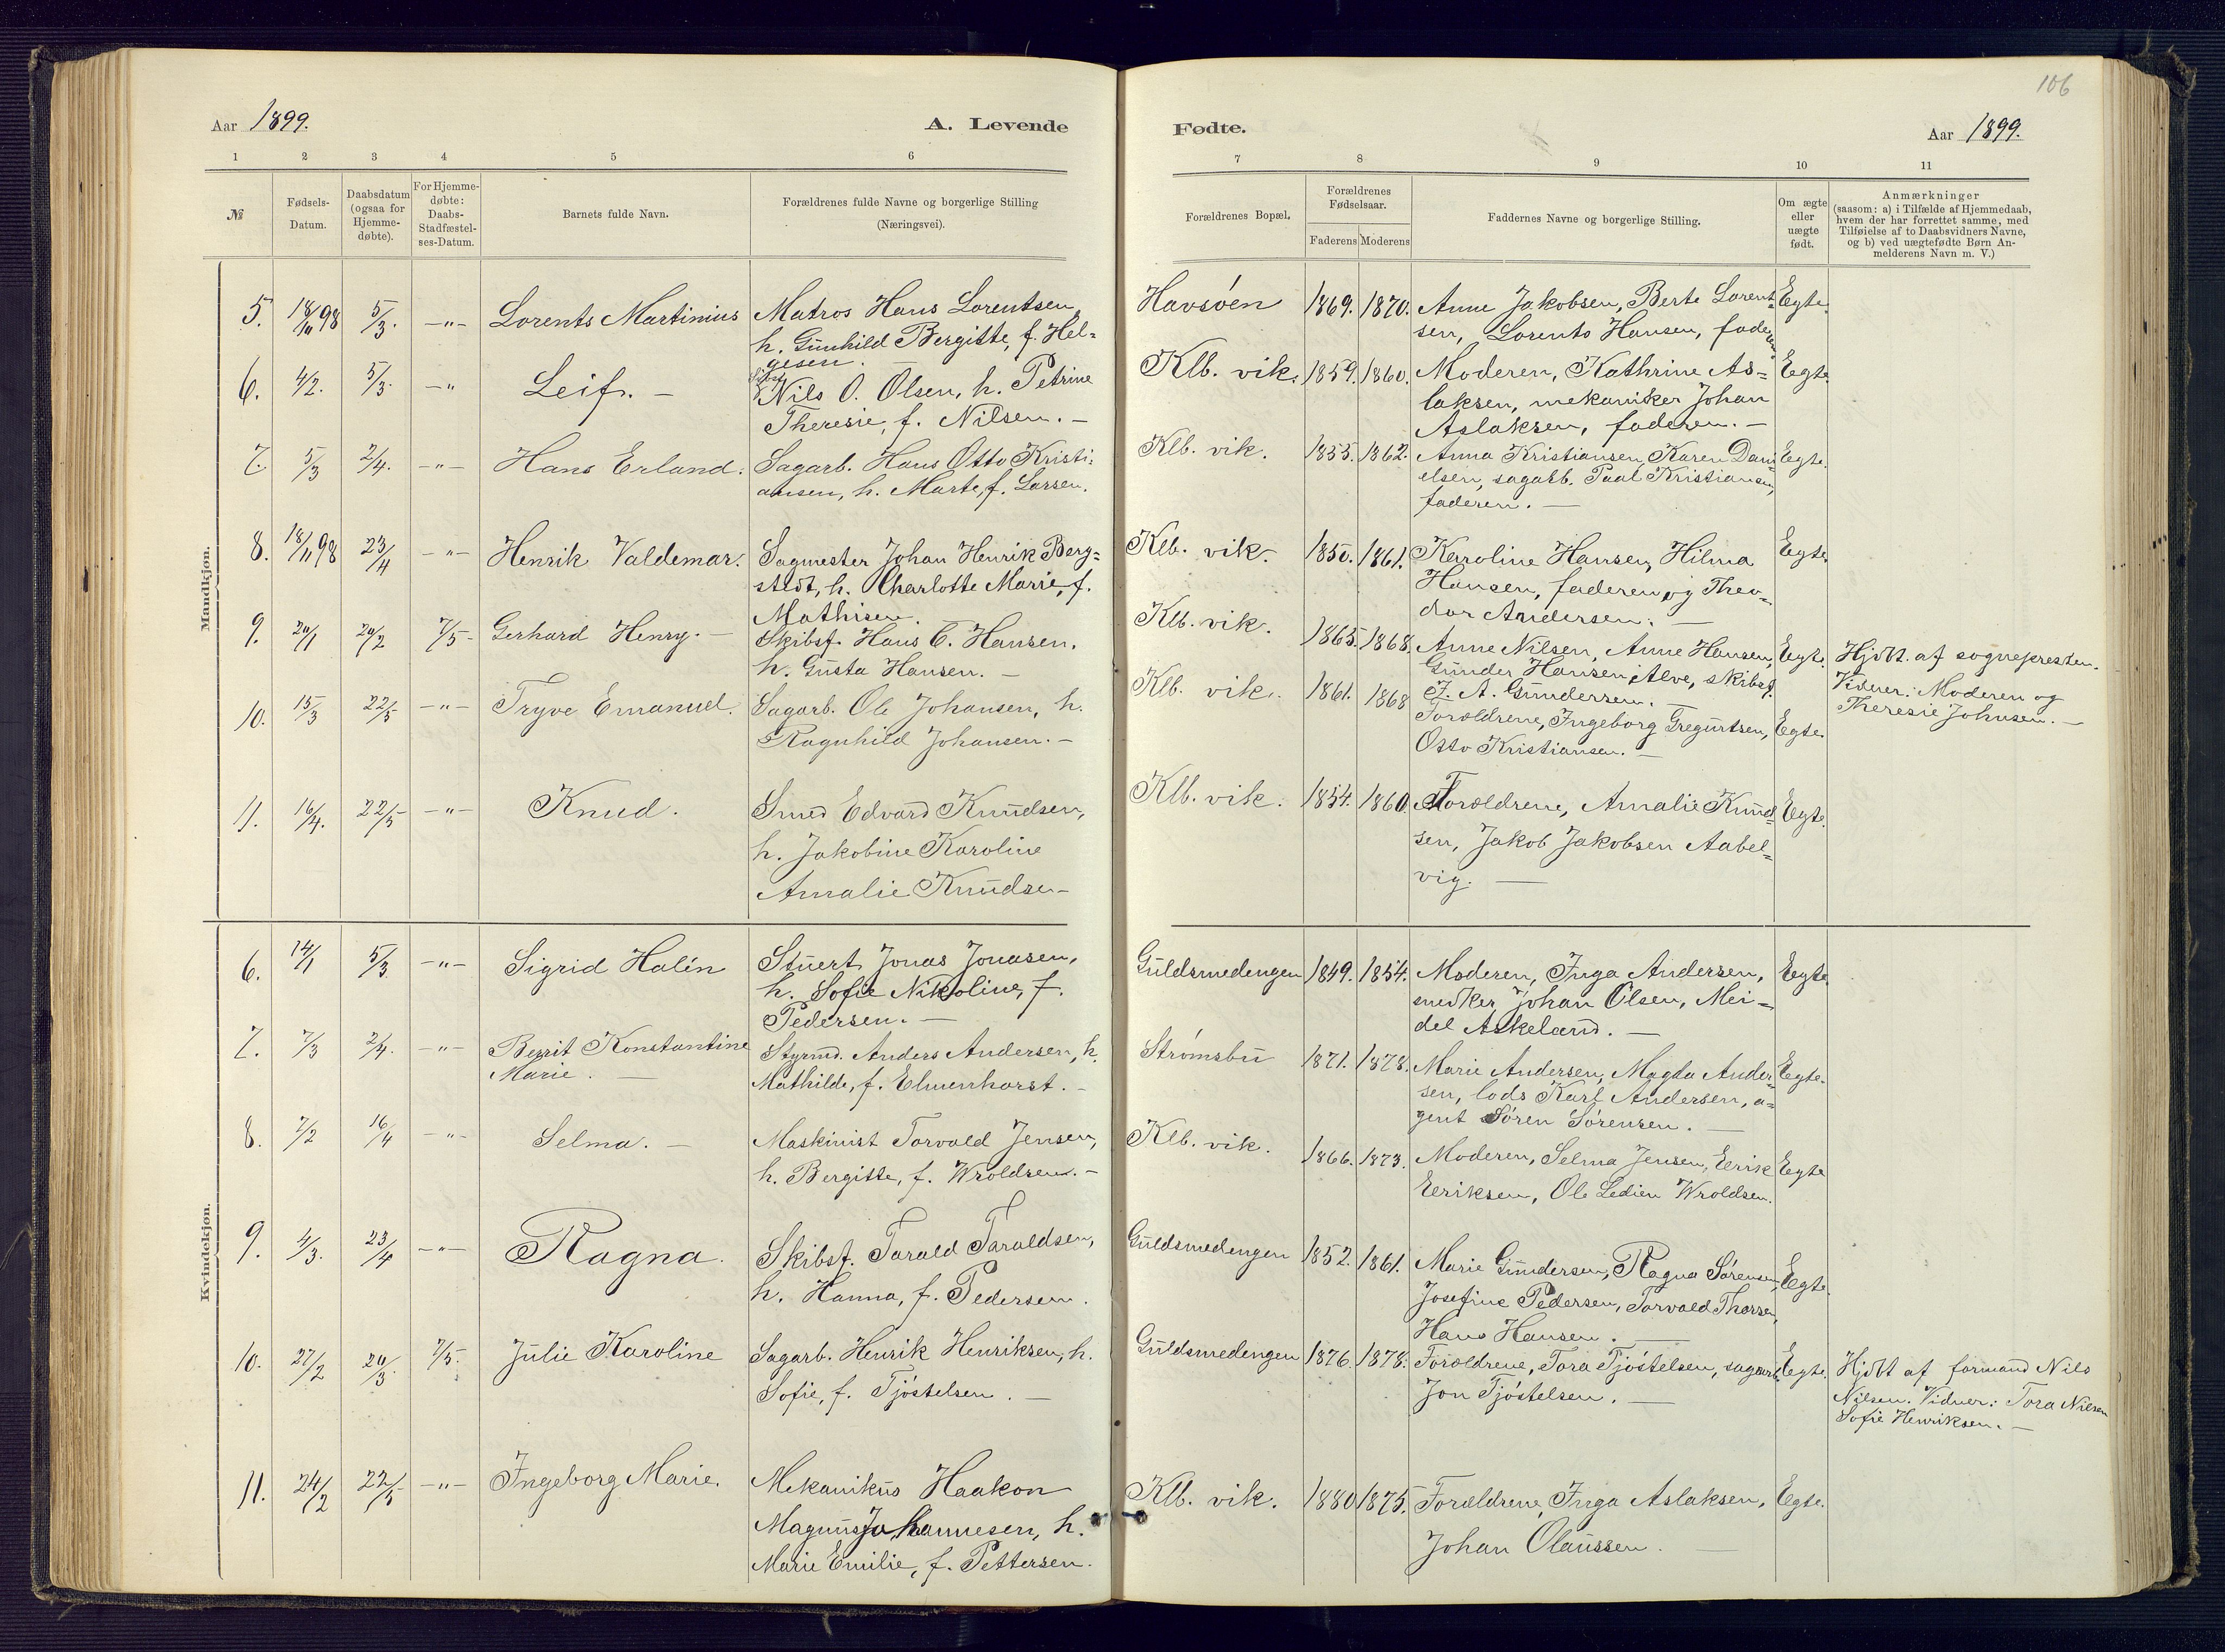 106
Aar 1899. A. Levende Fødte. Aar 1899.
1 2 3 4 5 6 7 8 9 10 11
№
Fødsels-
Datum.
Daabsdatum
(ogsaa for
Hjemme-
døbte).
For Hjemme-
døbte:
Daabs-
Stadfæstel-
ses-Datum.
Barnets fulde Navn.
Forældrenes fulde Navne og borgerlige Stilling
(Næringsvei).
Forældrenes Bopæl.
Forældrenes
Fødselsaar.
Faderens Moderens
Faddernes Navne og borgerlige Stilling.
Om ægte
eller
uægte
født.
Anmærkninger
(saasom: a) i Tilfælde af Hjemmedaab,
hvem der har forrettet samme, med
Tilføielse af to Daabsvidners Navne,
og b) ved uægtefødte Børn An-
melderens Navn m. V.)
Mandkjøn.
5. 18/11 98 5/3. -"- Lorents Martinius
Matros Hans Lorentsen,
h. Gunhild Bergitte, f. Hel=
gesen.
Havsøen 1869. 1870.
Anne Jakobsen, Berte Lorent=
sen, Lorents Hansen, faderen.
Egte.
6. 4/2. 5/3. -"- Leif. -
Nils O. Olsen, h. Petrine
Theresie, f. Nilsen. -
Klb. vik. 1859. 1860.
Moderen, Kathrine As=
laksen, mekaniker Johan
Aslaksen, faderen. -
Egte.
7. 5/3 2/4. -"- Hans Erland.
Sagarb. Hans Otto Kristi=
ansen, h. Marte, f. Larsen.
Klb. vik. 1855. 1862.
Anna Kristiansen, Karen Dani=
elsen, sagarb. Paal Kristiansen,
faderen. -
Egte.
8. 18/11 98 23/4 -"- Henrik Valdemar.
Sagmester Johan Henrik Berg=
stedt, h. Charlotte Marie, f.
Mathisen.
Klb. vik. 1850. 1861.
Karoline Hansen, Hilma
Hansen, faderen og Theo=
dor Andersen. -
Egte.
9. 20/1 20/2 7/5- Gerhard Henry. -
Skibsf. Hans C. Hansen.
h. Gusta Hansen. -
Klb. vik. 1865. 1868.
Anne Nilsen, Anne Hansen,
Gunder Hansen Alve, skibsf.
J. A. Gundersen. -
Egte.
Hjdbt. af sognepresten.
Vidner: Moderen og
Theresie Johnsen. -
10. 15/3 22/5 -"- Tryve Emanuel.
Sagarb. Ole Johansen, h.
Ragnhild Johansen. -
Klb. vik. 1861. 1868
Forældrene, Ingeborg Gregertsen,
Otto Kristiansen. -
Egte.
11. 16/4. 22/5 -"- Knud.
Smed Edvard Knudsen,
h. Jakobine Karoline
Amalie Knudsen -
Klb. vik. 1854. 1860.
Forældrene, Amalie Knud=
sen, Jakob Jakobsen Aabel=
vig. -
Egte.
Kvindekjøn.
6. 14/1 5/3 -"- Sigrid Halén
Stuert Jonas Jonasen,
h. Sofie Nikoline, f.
Pedersen. -
Guldsmedengen 1849. 1854.
Moderen, Inga Andersen,
snedker Johan Olsen, Mei=
del Askeland. -
Egte.
7. 7/3 2/4. -"- Berit Konstantine
Marie. -
Styrmd. Anders Andersen, h.
Mathilde, f. Elmenhorst. -
Strømsbu 1871. 1878.
Marie Andersen, Magda Ander=
sen, lods Karl Andersen, a=
gent Søren Sørensen. -
Egte.
8. 7/2 16/4 -"- Selma. -
Maskinist Torvald Jensen,
h. Bergitte, f. Wroldsen. -
Klb. vik. 1866. 1873.
Moderen, Selma Jensen, Eerik
Eeriksen, Ole Ledien Wroldsen.
Egte
9. 4/3. 23/4 -"- Ragna.
Skibsf. Tarald Taraldsen,
h. Hanna, f. Pedersen.
Guldsmedengen 1852. 1861.
Marie Gundersen, Ragna Sørensen,
Josefine Pedersen, Torvald Thorsen,
Hans Hansen. -
Egte.
10. 27/2 20/3. 7/5. Julie Karoline
Sagarb. Henrik Henriksen, h.
Sofie, f. Tjøstelsen. -
Guldsmedengen 1876. 1878.
Forældrene, Tora Tjøstelsen, sagarb.
Jon Tjøstelsen. -
Egte.
Hjdbt af formand Nils
Nilsen. Vidner: Tora Nilsen
Sofie Henriksen. -
11. 24/2 22/5 -"- Ingeborg Marie.
Mekanikus Haakon
Magnus Johannesen, h.
Marie Emilie, f. Pettersen.
Klb. vik. 1880 1875.
Forældrene, Inga Aslaksen,
Johan Olaussen. -
Egte.